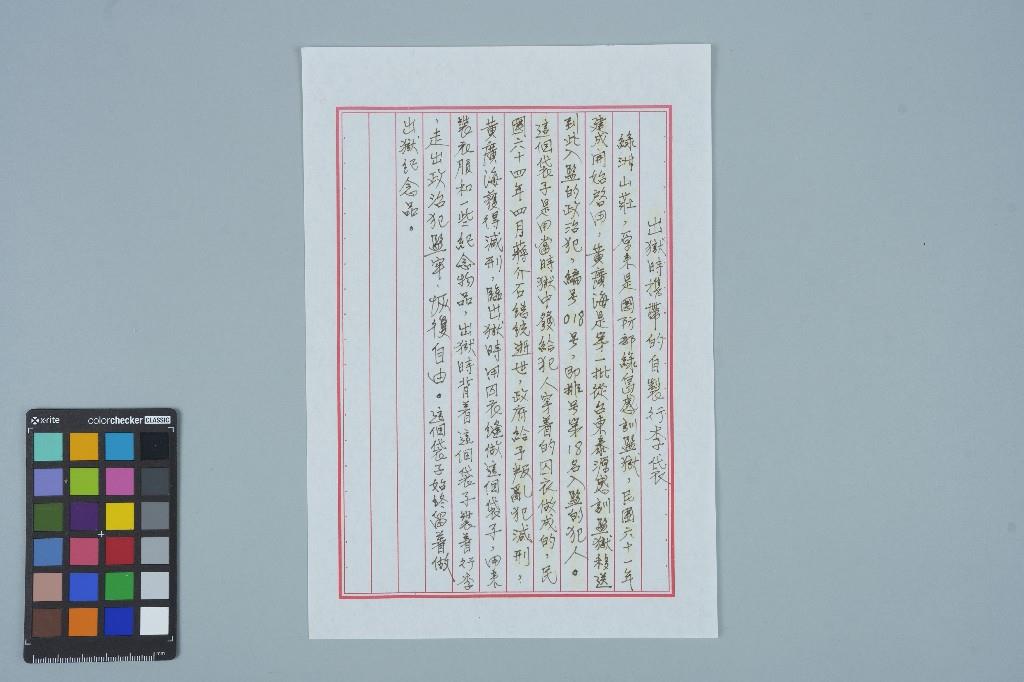 出獄時攜帶的自製行李袋
綠洲山莊，原來是國防部綠島感訓監獄，民國六十一年
建成開始啓用，黃廣海是第一批從台東泰源感訓監獄移送
到此入監的政治犯，編号018号，即排号第18名入監的犯人。
這個袋子是用當時獄中發給犯人穿着的囚衣做成的，民
國六十四年四月蔣介石總統逝世，政府給予叛亂犯減刑，
黃廣海獲得減刑，臨出獄時用囚衣縫做這個袋子，用來
裝衣服和一些紀念物品，出獄時背着這個袋子裝着行李
，走出政治犯監牢，恢復自由。這個袋子始終留着做
出獄紀念品。
x-rite
colorchecker CLASSIC
mm